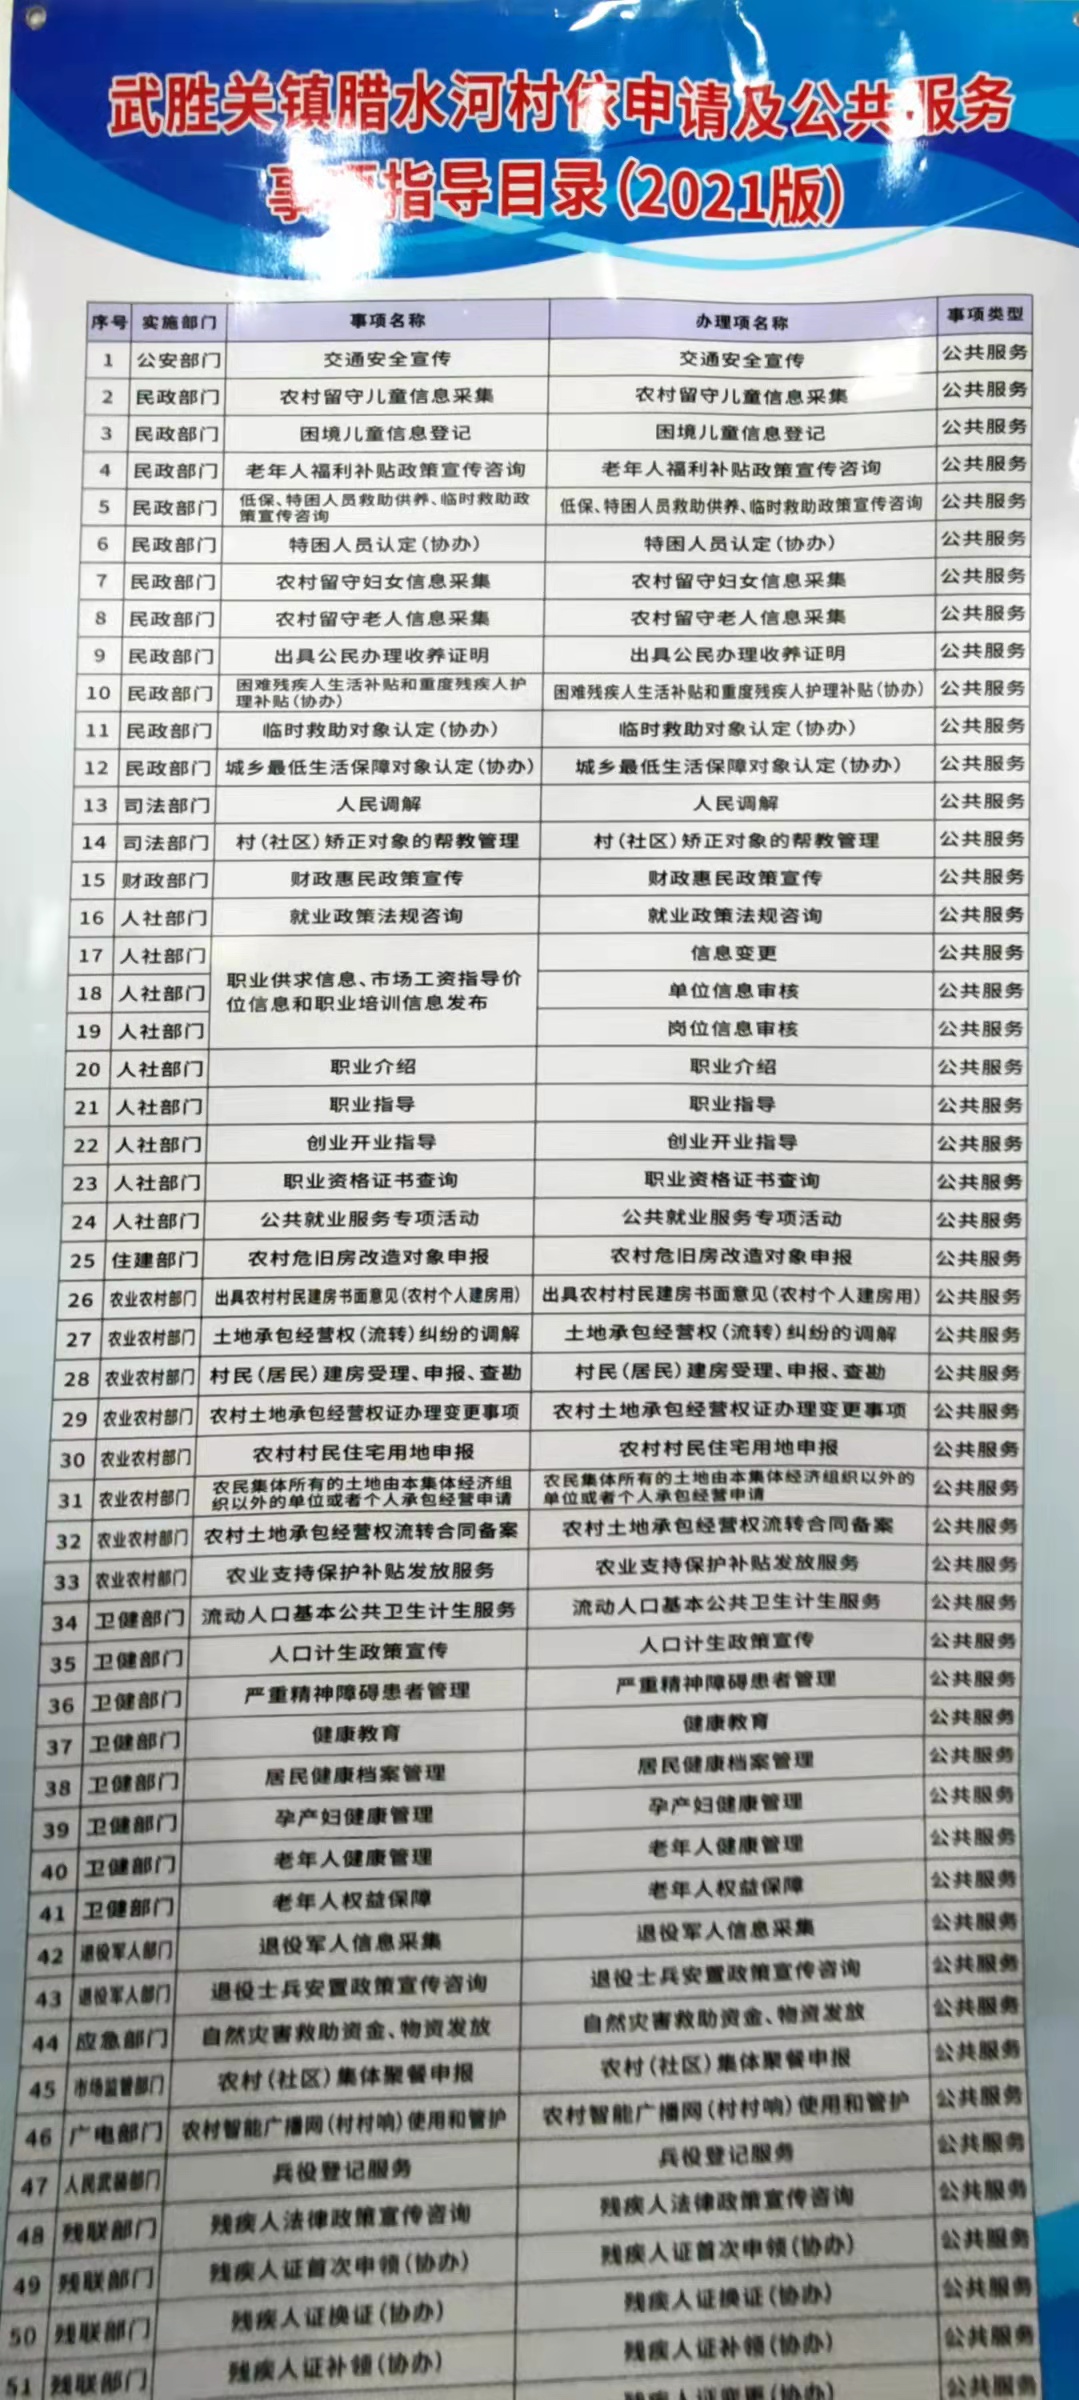 武胜关镇腊水河村依申请及公共服务
事项指导目录(2021版)
序号 实施部门 事项名称 办理项名称 事项类型
1 公安部门 交通安全宣传 交通安全宣传 公共服务
2 民政部门 农村留守儿童信息采集 农村留守儿童信息采集 公共服务
3 民政部门 困境儿童信息登记 困境儿童信息登记 公共服务
4 民政部门 老年人福利补贴政策宣传咨询 老年人福利补贴政策宣传咨询 公共服务
5 民政部门 低保、特困人员救助供养、临时救助政
策宣传咨询 低保、特困人员救助供养、临时救助政策宣传咨询 公共服务
6 民政部门 特困人员认定(协办) 特困人员认定(协办) 公共服务
7 民政部门 农村留守妇女信息采集 农村留守妇女信息采集 公共服务
8 民政部门 农村留守老人信息采集 农村留守老人信息采集 公共服务
9 民政部门 出具公民办理收养证明 出具公民办理收养证明 公共服务
10 民政部门 困难残疾人生活补贴和重度残疾人护
理补贴(协办) 困难残疾人生活补贴和重度残疾人护理补贴(协办) 公共服务
11 民政部门 临时救助对象认定(协办) 临时救助对象认定(协办) 公共服务
12 民政部门 城乡最低生活保障对象认定(协办) 城乡最低生活保障对象认定(协办) 公共服务
13 司法部门 人民调解 人民调解 公共服务
14 司法部门 村(社区)矫正对象的帮教管理 村(社区)矫正对象的帮教管理 公共服务
15 财政部门 财政惠民政策宣传 财政惠民政策宣传 公共服务
16 人社部门 就业政策法规咨询 就业政策法规咨询 公共服务
17 人社部门 职业供求信息、市场工资指导价
位信息和职业培训信息发布 信息变更 公共服务
18 人社部门 单位信息审核 公共服务
19 人社部门 岗位信息审核 公共服务
20 人社部门 职业介绍 职业介绍 公共服务
21 人社部门 职业指导 职业指导 公共服务
22 人社部门 创业开业指导 创业开业指导 公共服务
23 人社部门 职业资格证书查询 职业资格证书查询 公共服务
24 人社部门 公共就业服务专项活动 公共就业服务专项活动 公共服务
25 住建部门 农村危旧房改造对象申报 农村危旧房改造对象申报 公共服务
26 农业农村部门 出具农村村民建房书面意见(农村个人建房用) 出具农村村民建房书面意见(农村个人建房用) 公共服务
27 农业农村部门 土地承包经营权(流转)纠纷的调解 土地承包经营权(流转)纠纷的调解 公共服务
28 农业农村部门 村民(居民)建房受理、申报、查勘 村民(居民)建房受理、申报、查勘 公共服务
29 农业农村部门 农村土地承包经营权证办理变更事项 农村土地承包经营权证办理变更事项 公共服务
30 农业农村部门 农村村民住宅用地申报 农村村民住宅用地申报 公共服务
31 农业农村部门 农民集体所有的土地由本集体经济组
织以外的单位或者个人承包经营申请 农民集体所有的土地由本集体经济组织以外的
单位或者个人承包经营申请 公共服务
32 农业农村部门 农村土地承包经营权流转合同备案 农村土地承包经营权流转合同备案 公共服务
33 农业农村部门 农业支持保护补贴发放服务 农业支持保护补贴发放服务 公共服务
34 卫健部门 流动人口基本公共卫生计生服务 流动人口基本公共卫生计生服务 公共服务
35 卫健部门 人口计生政策宣传 人口计生政策宣传 公共服务
36 卫健部门 严重精神障碍患者管理 严重精神障碍患者管理 公共服务
37 卫健部门 健康教育 健康教育 公共服务
38 卫健部门 居民健康档案管理 居民健康档案管理 公共服务
39 卫健部门 孕产妇健康管理 孕产妇健康管理 公共服务
40 卫健部门 老年人健康管理 老年人健康管理 公共服务
41 卫健部门 老年人权益保障 老年人权益保障 公共服务
42 退役军人部门 退役军人信息采集 退役军人信息采集 公共服务
43 退役军人部门 退役士兵安置政策宣传咨询 退役士兵安置政策宣传咨询 公共服务
44 应急部门 自然灾害救助资金、物资发放 自然灾害救助资金、物资发放 公共服务
45 市场监管部门 农村(社区)集体聚餐申报 农村(社区)集体聚餐申报 公共服务
46 广电部门 农村智能广播网(村村响)使用和管护 农村智能广播网(村村响)使用和管护 公共服务
47 人民武装部门 兵役登记服务 兵役登记服务 公共服务
48 残联部门 残疾人法律政策宣传咨询 残疾人法律政策宣传咨询 公共服务
49 残联部门 残疾人证首次申领(协办) 残疾人证首次申领(协办) 公共服务
50 残联部门 残疾人证换证(协办) 残疾人证换证(协办) 公共服务
51 残联部门 残疾人证补领(协办) 残疾人证补领(协办) 公共服务
残疾人证变更(协办) 公共服务